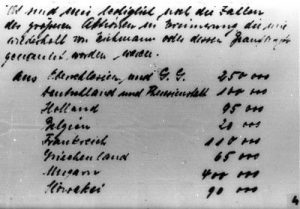 Es sind mir lediglich noch die Zahlen
der größeren Aktionen in Erinnerung die mir
wiederholt von Eichmann oder dessen
genannt worden waren.
aus und G.G. 250 000
Deutschland und 100 000
Holland 95 000
Belgien 20 000
Frankreich 110 000
Griechenland 65 000
Ungarn 400 000
Slowakei 90 000